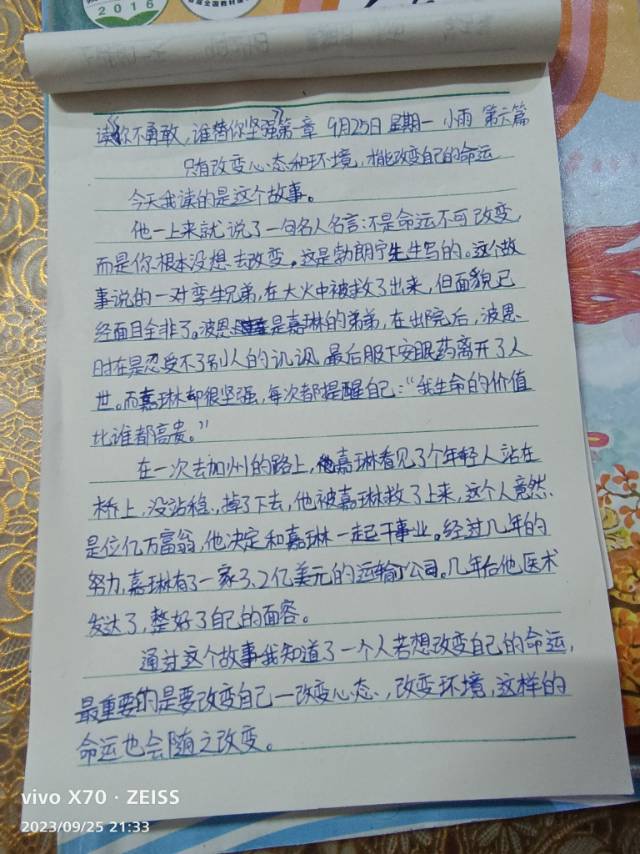 2016
读《你不勇敢，谁替你坚强》第一章 9月25日 星期一 小雨 第六篇
只有改变心态和环境，才能改变自己的命运
今天我读的是这个故事。
他一上来就说了一句名人名言：不是命运不可改变，
而是你根本没想去改变。这是勃朗宁先生写的。这个故
事说的一对孪生兄弟，在大火中被救了出来，但面貌已
经面目全非了。波恩是嘉琳的弟弟，在出院后，波恩
时在是忍受不了别人的讥讽，最后服下安眠药离开了人
世。而嘉琳却很坚强，每次都提醒自己：“我生命的价值
比谁都高贵。”
在一次去加州的路上，嘉琳看见了个年轻人站在
桥上，没站稳，掉了下去，他被嘉琳救了上来，这个人竟然
是位亿万富翁，他决定和嘉琳一起干事业。经过几年的
努力，嘉琳有了一家3.2亿美元的运输公司。几年后他医术
发达了，整好了自己的面容。
通过这个故事我知道了一个人若想改变自己的命运，
最重要的是要改变自己—改变心态，改变环境，这样的
命运也会随之改变。
vivo X70 · ZEISS
2023/09/25 21:33